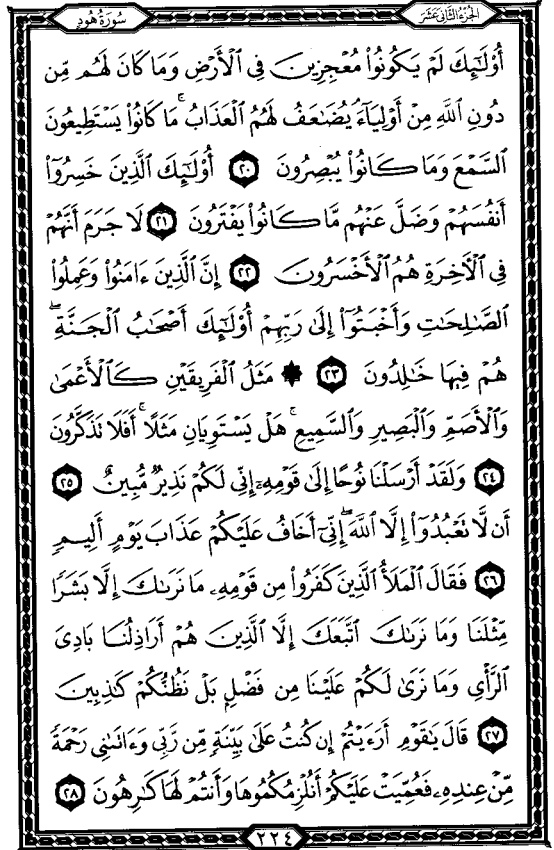 الجزء الثاني عشر
سورة هود
أُوْلَٰٓئِكَ لَمۡ يَكُونُواْ مُعۡجِزِينَ فِي ٱلۡأَرۡضِ وَمَا كَانَ لَهُم مِّن
دُونِ ٱللَّهِ مِنۡ أَوۡلِيَآءَۘ يُضَٰعَفُ لَهُمُ ٱلۡعَذَابُۚ مَا كَانُواْ يَسۡتَطِيعُونَ
ٱلسَّمۡعَ وَمَا كَانُواْ يُبۡصِرُونَ ٢٠ أُوْلَٰٓئِكَ ٱلَّذِينَ خَسِرُوٓاْ
أَنفُسَهُمۡ وَضَلَّ عَنۡهُم مَّا كَانُواْ يَفۡتَرُونَ ٢١ لَا جَرَمَ أَنَّهُمۡ
فِي ٱلۡأٓخِرَةِ هُمُ ٱلۡأَخۡسَرُونَ ٢٢ إِنَّ ٱلَّذِينَ ءَامَنُواْ وَعَمِلُواْ
ٱلصَّٰلِحَٰتِ وَأَخۡبَتُوٓاْ إِلَىٰ رَبِّهِمۡ أُوْلَٰٓئِكَ أَصۡحَٰبُ ٱلۡجَنَّةِۖ
هُمۡ فِيهَا خَٰلِدُونَ ٢٣ ۞ مَثَلُ ٱلۡفَرِيقَيۡنِ كَٱلۡأَعۡمَىٰ
وَٱلۡأَصَمِّ وَٱلۡبَصِيرِ وَٱلسَّمِيعِۚ هَلۡ يَسۡتَوِيَانِ مَثَلًاۚ أَفَلَا تَذَكَّرُونَ
٢٤ وَلَقَدۡ أَرۡسَلۡنَا نُوحًا إِلَىٰ قَوۡمِهِۦٓ إِنِّي لَكُمۡ نَذِيرٞ مُّبِينٌ ٢٥
أَن لَّا تَعۡبُدُوٓاْ إِلَّا ٱللَّهَۖ إِنِّيٓ أَخَافُ عَلَيۡكُمۡ عَذَابَ يَوۡمٍ أَلِيمٖ
٢٦ فَقَالَ ٱلۡمَلَأُ ٱلَّذِينَ كَفَرُواْ مِن قَوۡمِهِۦ مَا نَرَىٰكَ إِلَّا بَشَرٗا
مِّثۡلَنَا وَمَا نَرَىٰكَ ٱتَّبَعَكَ إِلَّا ٱلَّذِينَ هُمۡ أَرَاذِلُنَا بَادِيَ
ٱلرَّأۡيِ وَمَا نَرَىٰ لَكُمۡ عَلَيۡنَا مِن فَضۡلِۭ بَلۡ نَظُنُّكُمۡ كَٰذِبِينَ
٢٧ قَالَ يَٰقَوۡمِ أَرَءَيۡتُمۡ إِن كُنتُ عَلَىٰ بَيِّنَةٖ مِّن رَّبِّي وَءَاتَىٰنِي رَحۡمَةٗ
مِّنۡ عِندِهِۦ فَعُمِّيَتۡ عَلَيۡكُمۡ أَنُلۡزِمُكُمُوهَا وَأَنتُمۡ لَهَا كَٰرِهُونَ ٢٨
٢٢٤